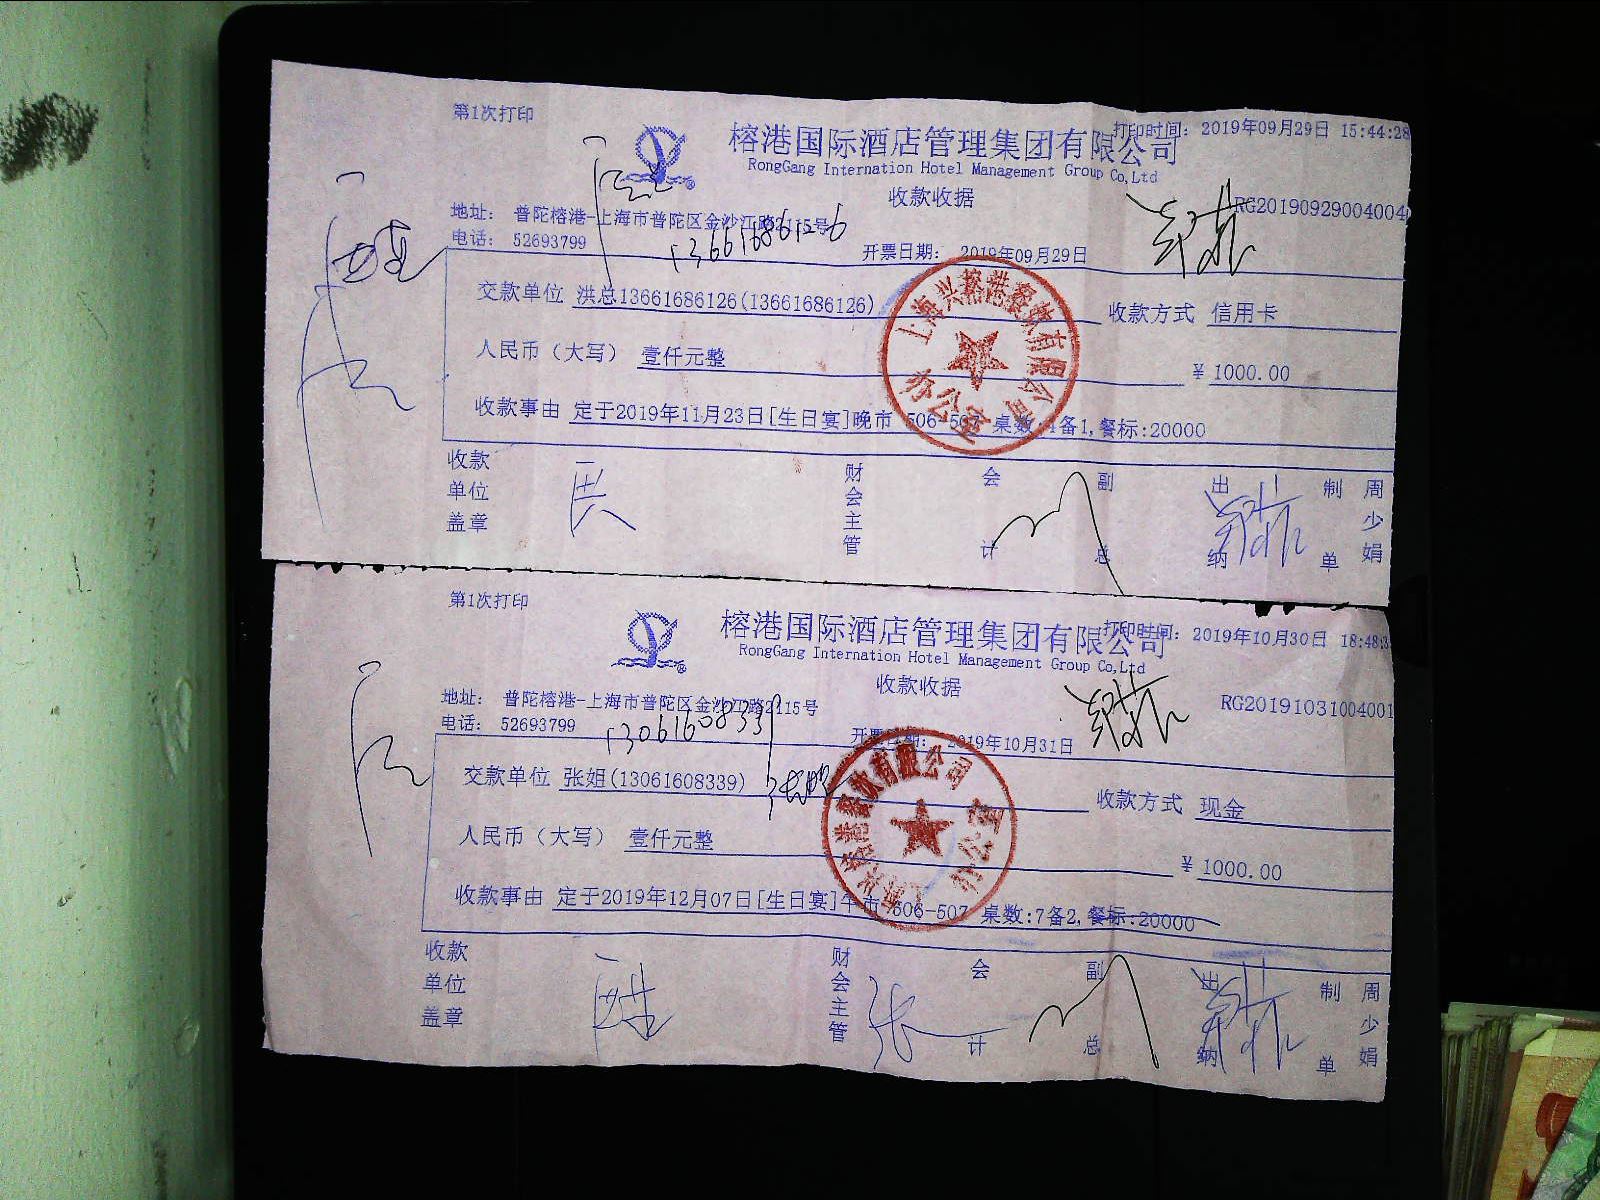 第1次打印
打印时间: 2019年09月29日 15:44:28
榕港国际酒店管理集团有限公司
RongGang Internation Hotel Management Group Co,Ltd
收款收据
RG20190929004004
地址: 普陀榕港-上海市普陀区金沙江路2115号
电话: 52693799
13661686126
开票日期: 2019年09月29日
交款单位 洪总13661686126(13661686126)
收款方式 信用卡
人民币（大写） 壹仟元整
¥ 1000.00
收款事由 定于2019年11月23日[生日宴]晚市 506-507 桌数:4备1,餐标:20000
上海兴榕港餐饮有限公司
办公室
收款单位盖章
财会主管
会计
副总
出纳
制单
周少娟
第1次打印
打印时间: 2019年10月30日 18:48:3
榕港国际酒店管理集团有限公司
RongGang Internation Hotel Management Group Co,Ltd
收款收据
RG20191031004001
地址: 普陀榕港-上海市普陀区金沙江路2115号
电话: 52693799
13061608339
开票日期: 2019年10月31日
交款单位 张姐(13061608339)
收款方式 现金
人民币（大写） 壹仟元整
¥ 1000.00
收款事由 定于2019年12月07日[生日宴]午市 506-507 桌数:7备2,餐标:20000
上海兴榕港餐饮有限公司
办公室
收款单位盖章
财会主管
会计
副总
出纳
制单
周少娟